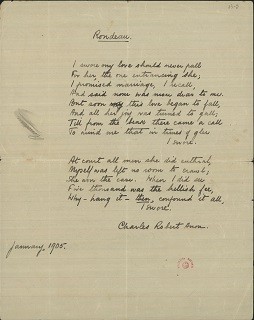 Rondeau.
I swore my love should never pall
For her, the one entrancing she,
I promised marriage, I recall,
And said none was more dear to me.
But soon my love began to fall,
And all her joy was turned to gall;
Till from the Bench there came a call
To mind me that in times of glee
I swore.
At court all men she did enthral,
Myself was left no room to crawl,
She won the case. When I did see
Five thousand was the hellish fee,
Why - hang it - then, confound it all,
I swore.
Charles Robert Anon.
January, 1905.